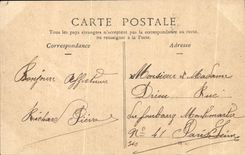 CARTE POSTALE
Tous les pays étrangers n'acceptent pas la correspondance
au recto, se renseigner à la Poste.
Correspondance
Adresse
Monsieur & Madame
Bonjour Affectueux
Rue
du faubourg Montmartre
Pierre
N° 41 Paris